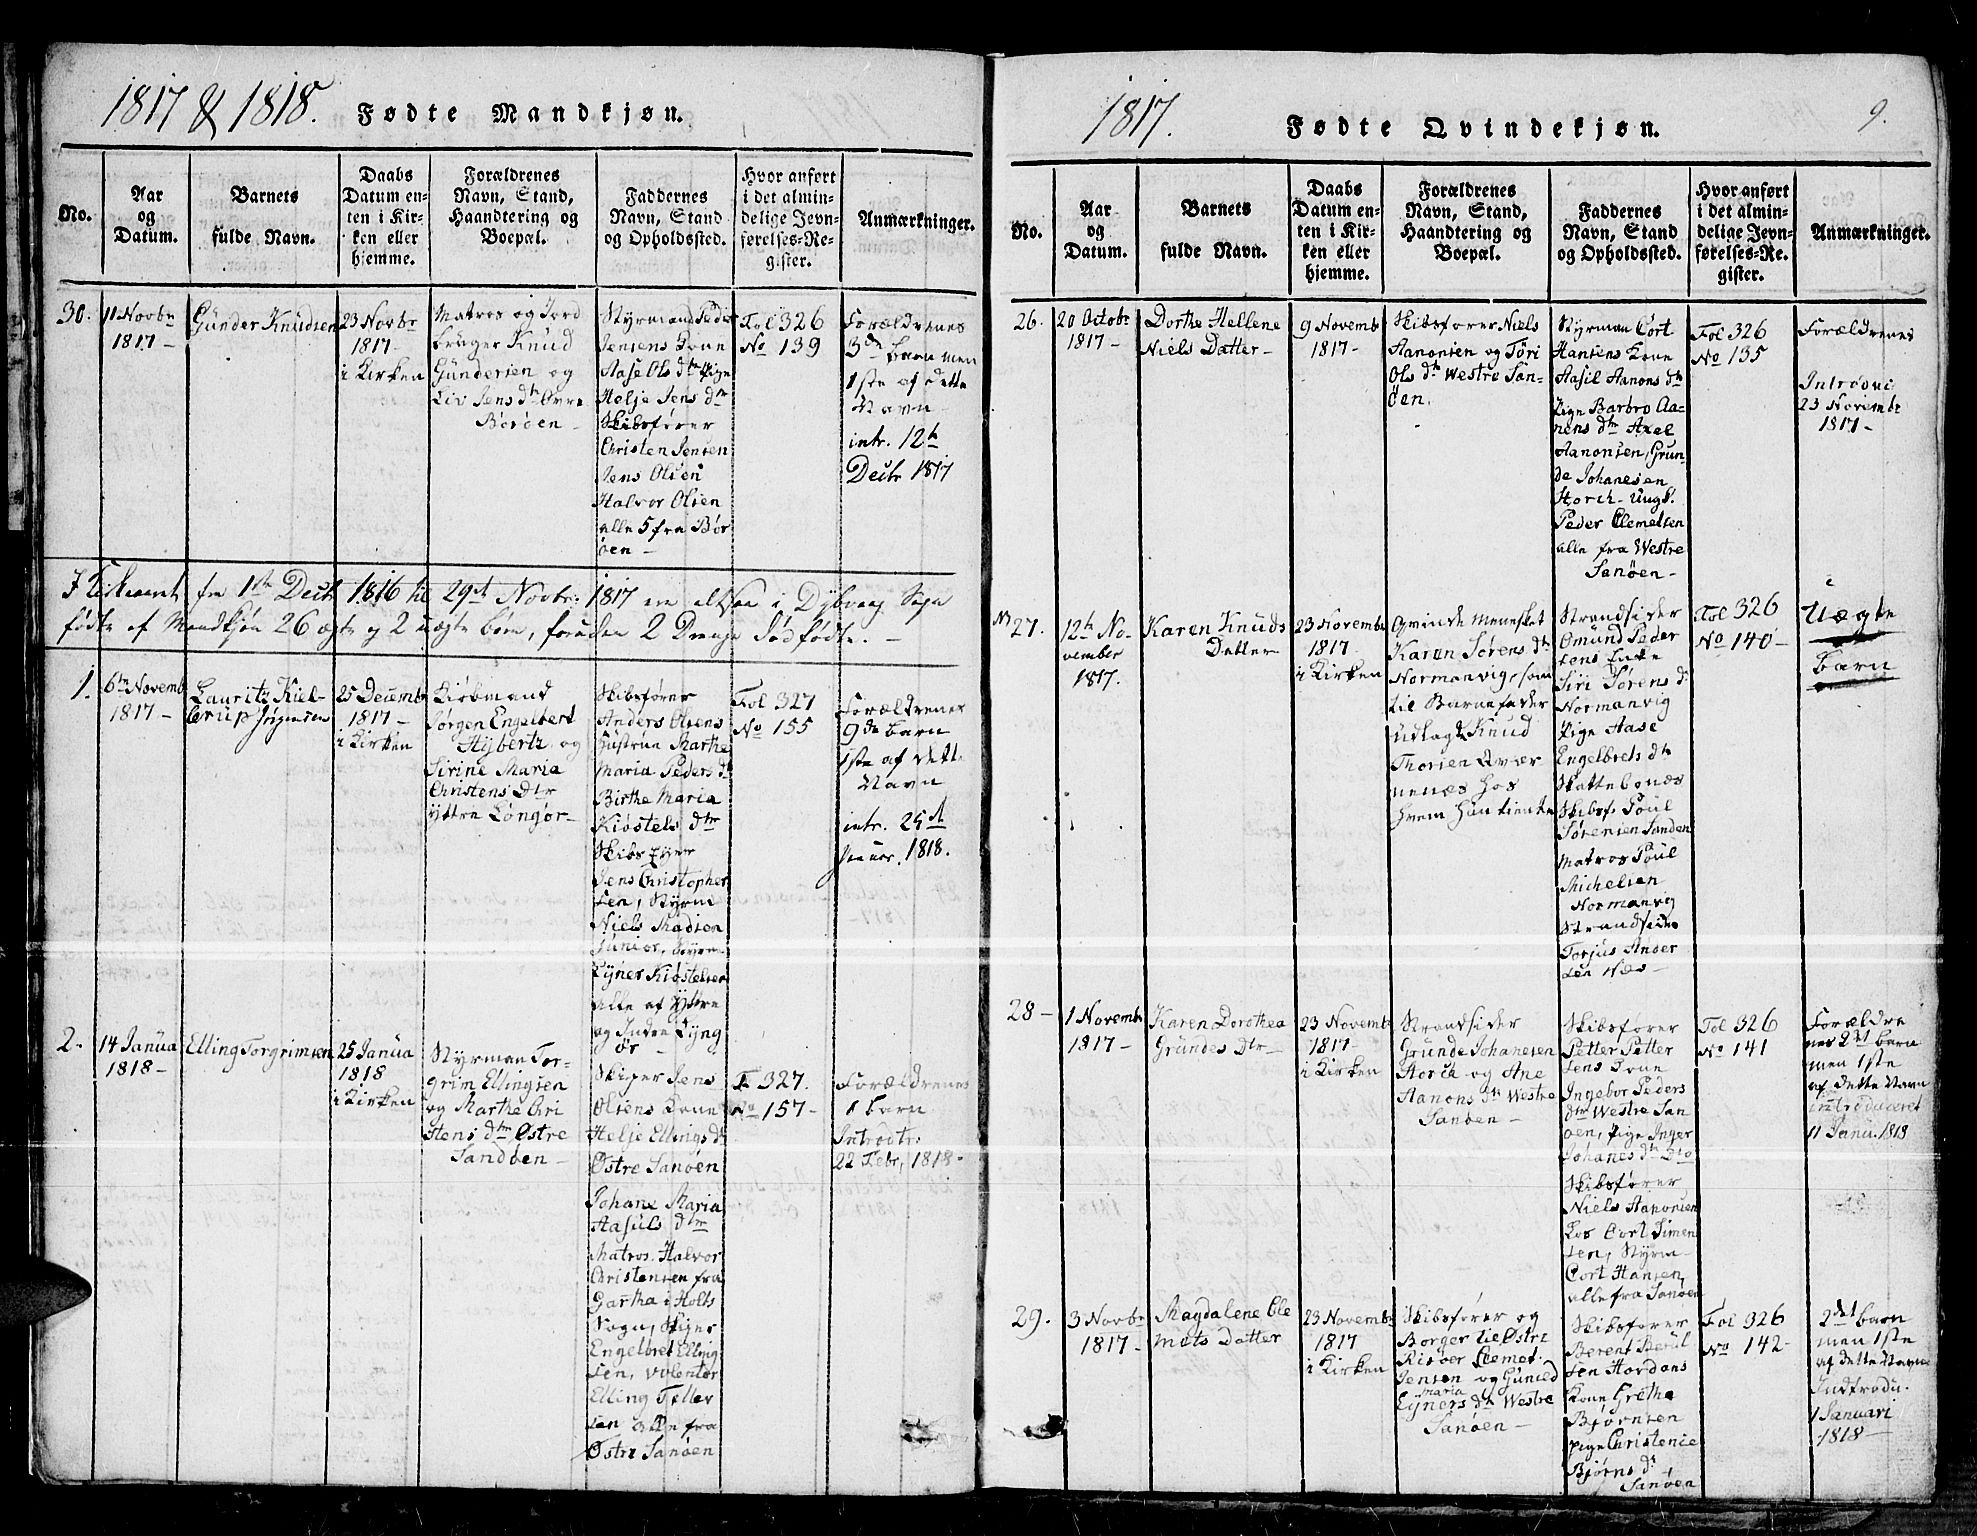 1817 & 1818. Fødte Mandkjøn.
No.
Aar
og
Datum.
Barnets
fulde Navn.
Daabs
Datum en-
ten i Kir-
ken eller
hjemme.
Forældrenes
Navn, Stand,
Haandtering og
Boepæl.
Faddernes
Navn, Stand
og Opholdssted.
Hvor anført
i det almin-
delige Jevn-
førelses-Re-
gister.
Anmærkninger.
30.
11 Novbr
1817 -
Gunder Knudsen
23 Novbr
1817 -
i Kirken
Matros og Jord
bruger Knud
Gundersen og
Liv Jens dtr Øvre
Børøen -
Styrmand Peder
Jensens Kone
Aase Ols dtr Pige
Helje Jens dtr
Skibsfører
Christen Jensen
Jens Olsen
Halvor Olsen
alle 5 fra Bør
øen -
Fol 326
No 139
Forældrenes
3de barn men
1ste af dette
Navn
intr. 12te
Decbr 1817
fra 1ste Decbr 1816 til 29de Novbr: 1817 ere altsaa i Dybvaag Sogn
fødte af Mandkjøn 26 ægte og 2 uægte børn, foruden 2 Drenge dødfødte. -
1.
6te Novemb
1817 -
Lauritz Kiel-
lerup Jørgensen
25 Decemb
1817 -
i Kirken
Kiøbmand
Jørgen Engelbert
Hybertz og
Sirine Maria
Christens Dtr
Yttre Löngør -
Skibsfører
Anders Olsens
Hustrue Marthe
Maria Peders dtr
Birthe Maria
Kiøstels dtr
Skibs Eyer
Jens Christopher
sen, Styrm
Niels Madsen
Junior, Styrm
Eyner Kiøstelsen
alle af Yttre
og Indre Lyng
ör -
Fol 327
No 155
Forældrenes
9de barn
1ste af dette
Navn
intr. 25de
Januar. 1818.
2.
14 Janua
1818 -
Elling Torgrimsen
25 Janua
1818
i Kirken
Styrman Tor-
grim Ellingsen
og Marthe Chri
stens dtr Østre
Sandøen -
Skiper Jens
Olsens Kone
Helje Ellings dtr
Østre Sanøen
Johane Maria
Aasuls dtr
Matros. Halvor
Christensen fra
Gartha i Holts
Sogn, Skiper
Engelbret Elling
sen, volentör
Elling Teller
sen alle fra
Østre Sanøen
F. 327.
No 157 -
Forældrenes
1 barn
Introdtr:
22 Febr, 1818 -
1817. Fødte Qvindekjøn. 9.
No.
Aar
og
Datum.
Barnets
fulde Navn.
Daabs
Datum en-
ten i Kir-
ken eller
hjemme.
Forældrenes
Navn, Stand,
Haandtering og
Boepæl.
Faddernes
Navn, Stand
og Opholdssted.
Hvor anført
i det almin-
delige Jevn-
førelses-Re-
gister.
Anmærkninger.
26.
20 Octobr
1817 -
Dorthe Hellene
Niels Datter -
9 Novemb
1817 -
Skibsfører Niels
Aanonsen og Töri
Ols dtr Westre San-
öen.
Styrman Cort
Hansens Kone
Aasil Aanons dtr
Pige Barbro Aa-
nens dtr Axel
Aanonsen, Grun-
de Johanesen
Storch - Ungk.
Peder Clemetsen
alle fra Westre
Sanøen -
Fol 326
No 135
Forældrenes
Introdui
23 Novembr
1817 -
27.
12te No-
vember
1817.
Karen Knuds
Datter
23 Novemb
1817
i Kirken
Qvinde Mennesket
Karen Sörens dtr
Normanvig, som
til Barnefader
udlagt Knud
Thorsen Qvær
nenæs hos
hvem hun tiente
Strandsider
Omund Peder
sens Enke
Siri Sørens dr
Normanvig
Pige Aase
Engelbrets dtr
Skattebonæs
Skibsf. Poul
Sørensen Sanden
Matros Poul
Michelsen
Normanvig
Strandsider
Torjus Ander
sen Næs -
Fol 326
No 140 -
Uægte
barn
28 -
1 Novemb
1817 -
Karen Dorothea
Grundes Dtr -
23 Novemb
1817 -
i Kirken
Strandsider
Grunde Johanesen
Storck og Ane
Aanons dtr Westre
Sanøen -
Skibsfører
Petter Petter
sens Kone
Ingebor Peders
dtr Westre San
øen, Pige Inger
Johanes dtr Dto
Skibsfører
Niels Aanonsen
Los Cort Simen
sen, Styrm
Cort Hansen,
alle fra Sanøen
Fol 326
No 141
Forældre
nes 2det barn
men 1ste
af dette Navn
introduceret
11 Janu. 1818
29.
3 Novbr
1817 -
Magdalene Cle
mets Datter
23 Novemb
1817
i Kirken
Skibsfører og
Borger til Østre
Risøer Clemet
Jensen og Guneld
maria
Eyners dtr Westre
Sanøen -
Skibsfører
Berent Berul
sen Hordans
Kone Grethe
Bjørnsen
Pige Christence
Bjørns dtr
Sanøen
Fol 326
No 142 -
2det barn
men 1ste
af dette Navn
Indtrodu.
1 Januari
1818 -